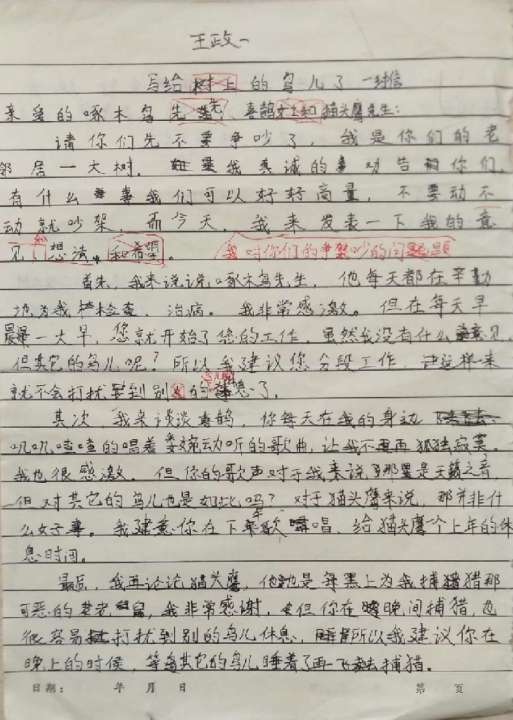 王政一
写给树上的鸟儿了一封信
亲爱的啄木鸟先生 喜鹊女士和猫头鹰先生:
请你们先不要争吵了,我是你们的老
邻居一大树。我真诚的劝告你们,
有什么事我们可以好好商量,不要动不
动就吵架。而今天,我来发表一下我的意
见和想法,和希望。我对你们的争架吵的问题
首先,我来说说啄木鸟先生,他每天都在辛勤
地为我检查、治病。我非常感激。但在每天早
一大早,您就开始了您的工作。虽然我没有什么意见,
但其它的鸟儿呢?所以我建议您分段工作,这样一来
就不会打扰到别鸟儿的休息了。
其次,我来谈谈喜鹊,你每天在我的身边
叽叽喳喳的唱着婉动听的歌曲,让我不再孤独寂寞。
我也很感激。但你的歌声对于我来说那是天籁之音,
但对其它的鸟儿也是如此吗?对于猫头鹰来说,那并非什
么好事。我建意你在下午歌唱、给猫头鹰个上午的休
息时间。
最后,我再论论猫头鹰,他是每黑上为我捕猎那
可恶的老鼠,我非常感谢,但你在晚间捕猎,也
很容易打扰到别的鸟儿休息,所以我建议你在
晚上的时候,等其它的鸟儿睡着了再飞去捕猎。
日期: 年 月 日 第 页